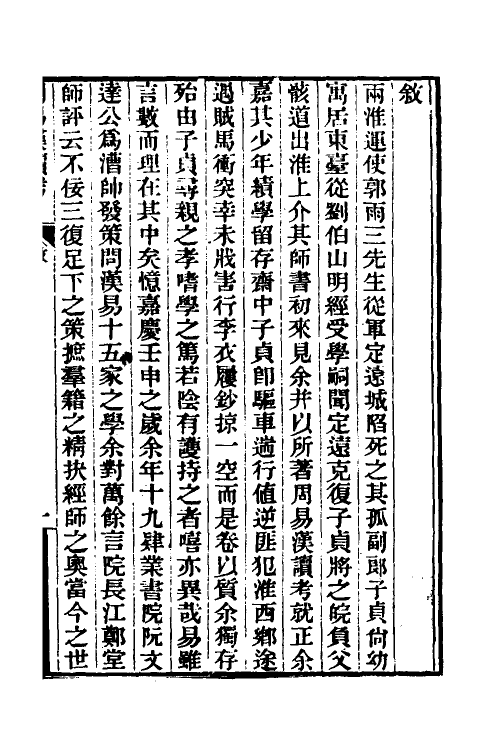 敘
兩淮運使郭雨三先生從軍定遠城陷死之其孤副郎子貞尙幼
寓居東臺從劉伯山明經受學嗣聞定遠克復子貞將之皖負父
骸道出淮上介其師書初來見余幷以所著周易漢讀考就正余
嘉其少年績學留存齋中子貞卽驅車遄行値逆匪犯淮西鄕途
遇賊馬衝突幸未戕害行李衣履鈔掠一空而是卷以質余獨存
殆由子貞尋親之孝嗜學之篤若陰有護持之者嘻亦異哉易雖
言數而理在其中矣憶嘉慶壬申之歲余年十九肄業書院阮文
達公爲漕帥發策問漢易十五家之學余對萬餘言院長江鄭堂
師評云不佞三復足下之策摭羣籍之精抉經師之奧當今之世